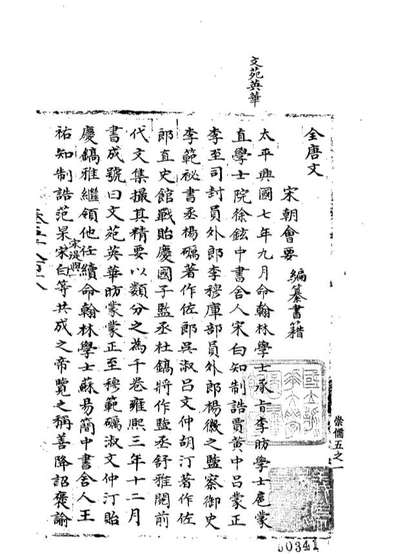 文苑英華
全唐文
宋朝會要
編纂書籍
太平興國七年九月命翰林學士承旨李昉學士扈蒙
直學士院徐鉉中書舍人宋白知制誥賈黃中呂蒙正
李至司封員外郎李穆庫部員外郎楊徽之監察御史
李範祕書丞楊礪著作佐郎吳淑呂文仲胡汀著作佐
郎直史館戰貽慶國子監丞杜鎬將作監丞舒雅閱前
代文集撮其精要以類分之為千卷雍熙三年十二月
書成號曰文苑英華昉蒙蒙正至穆範礪淑文仲汀貽
慶鎬雅繼領他任續命翰林學士蘇易簡中書舍人王
祐知制誥范杲宋白等共成之帝覽之稱善降詔褒諭
宋湜與
崇儒五之一
60341